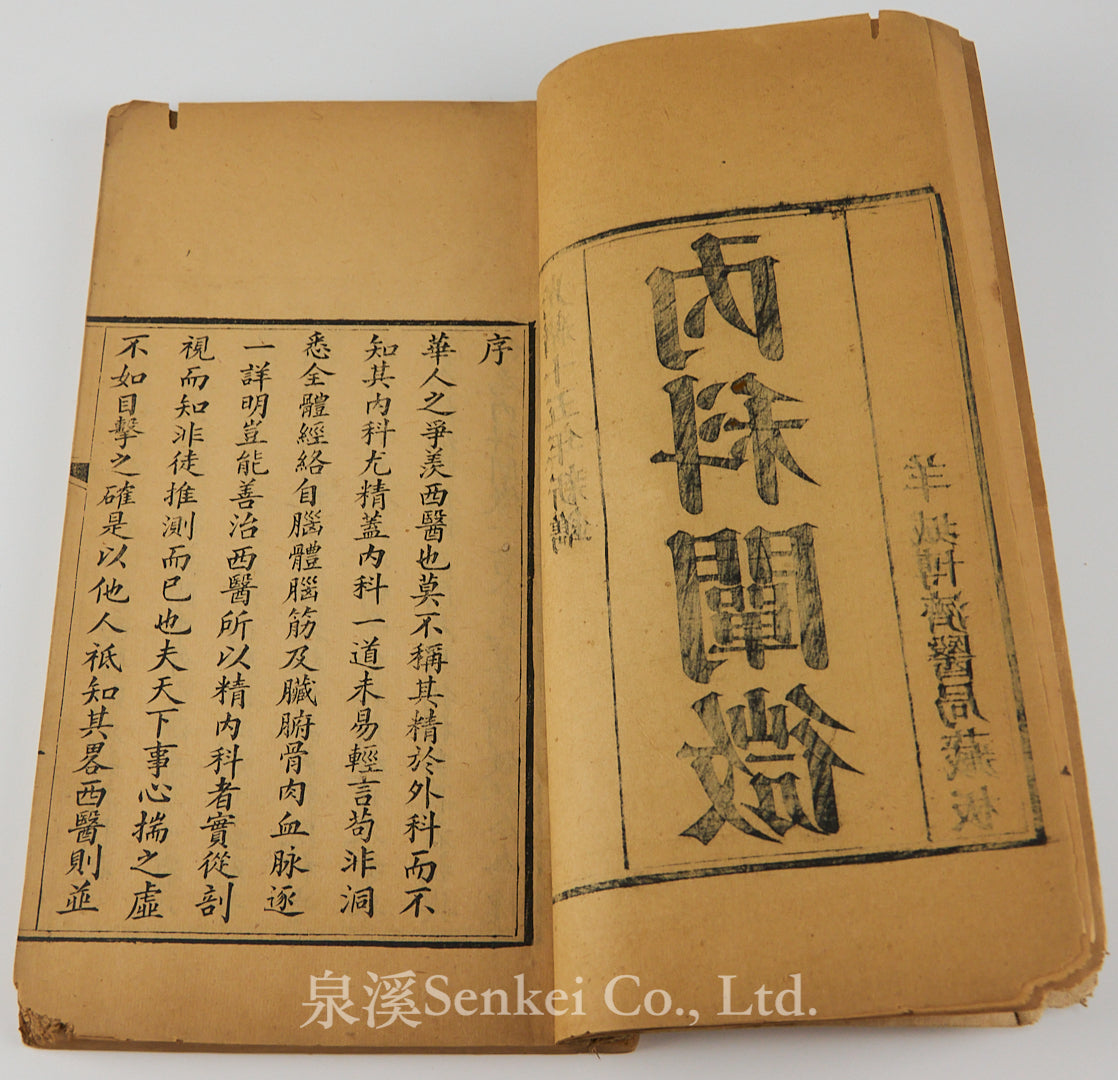 光緒十五年新鐫
內科闡微
羊城博濟醫局藏板
序
華人之爭羨西醫也莫不稱其精於外科而不
知其內科尤精蓋內科一道未易輕言苟非洞
悉全體經絡自腦體腦筋及臟腑骨肉血脉逐
一詳明豈能善治西醫所以精內科者實從剖
視而知非徒推測而已也夫天下事心揣之虛
不如目擊之確是以他人祇知其畧西醫則並
泉溪Senkei Co., Ltd.